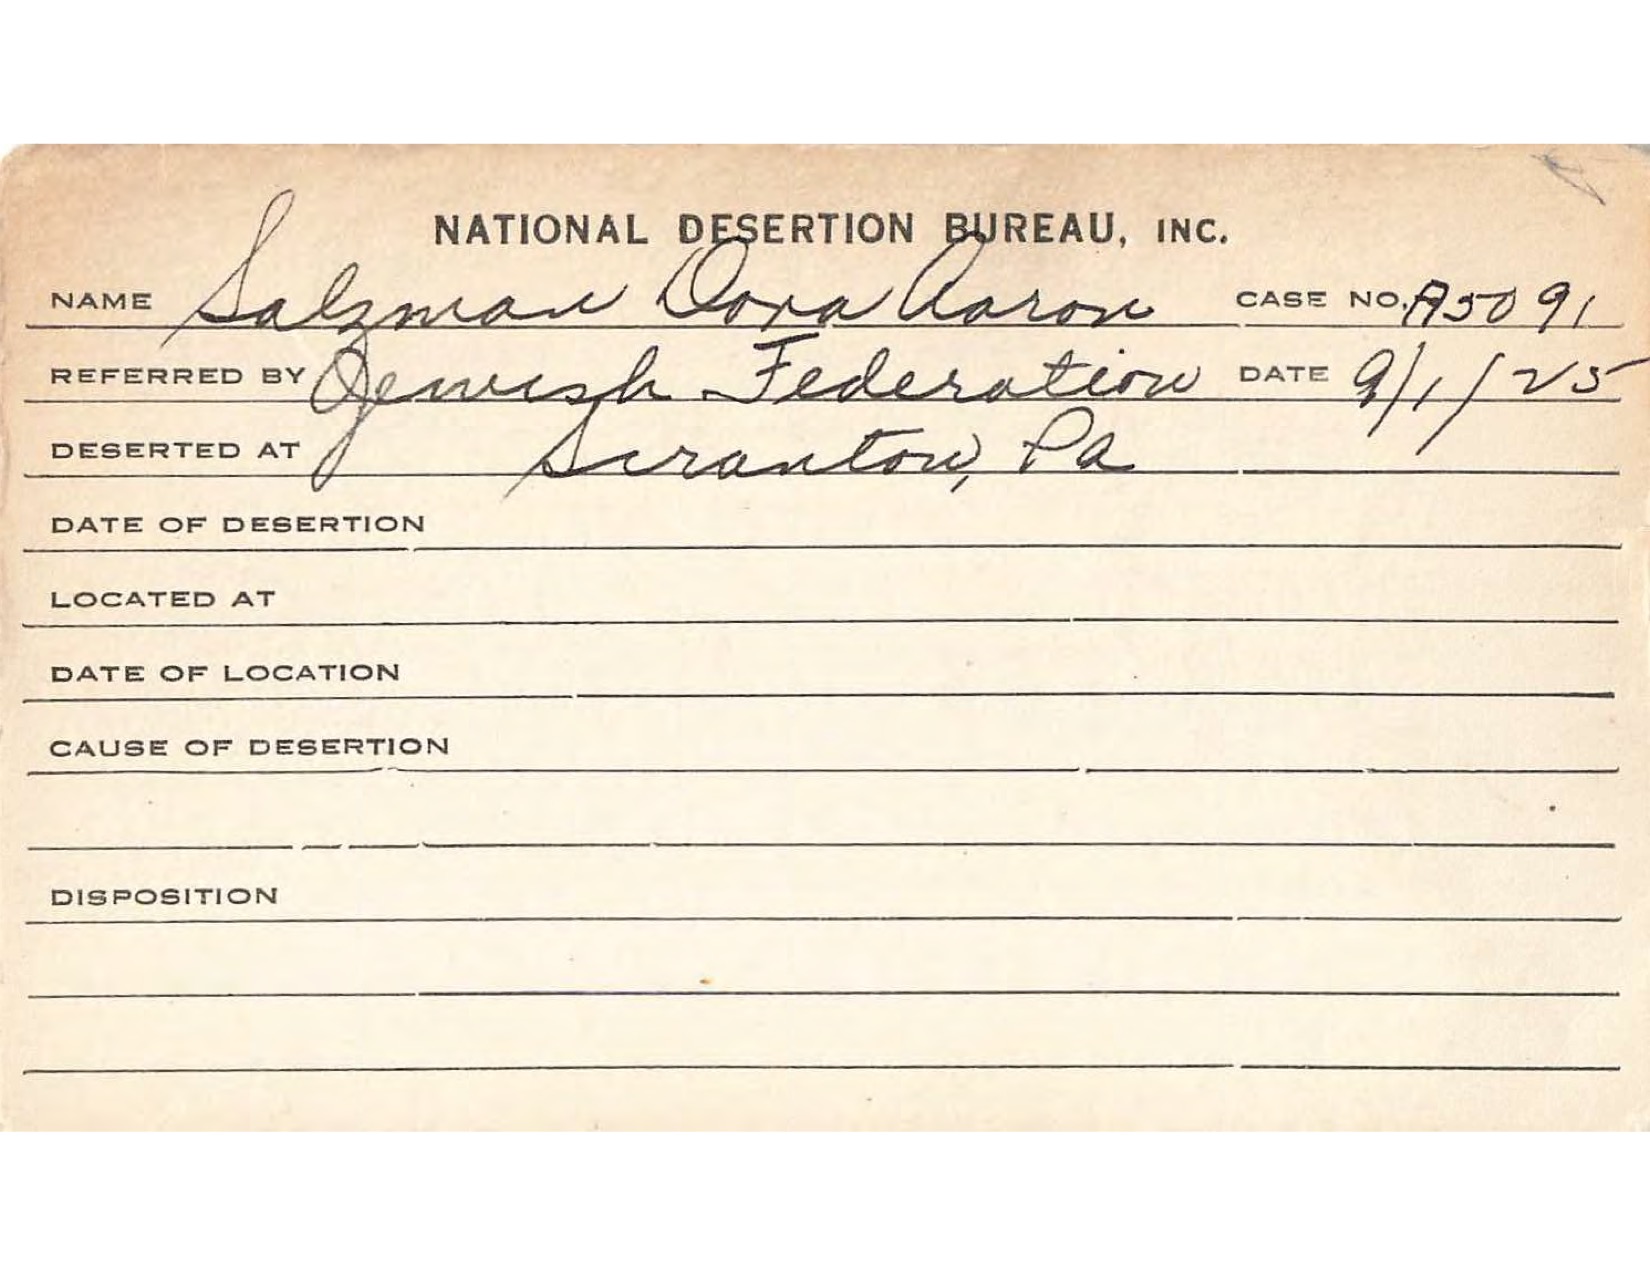 NATIONAL DESERTION BUREAU, INC.
NAME Salzman Dora Aaron CASE NO. A5091
REFERRED BY Jewish Federation DATE 9/1/25
DESERTED AT Scranton, Pa
DATE OF DESERTION
LOCATED AT
DATE OF LOCATION
CAUSE OF DESERTION
DISPOSITION